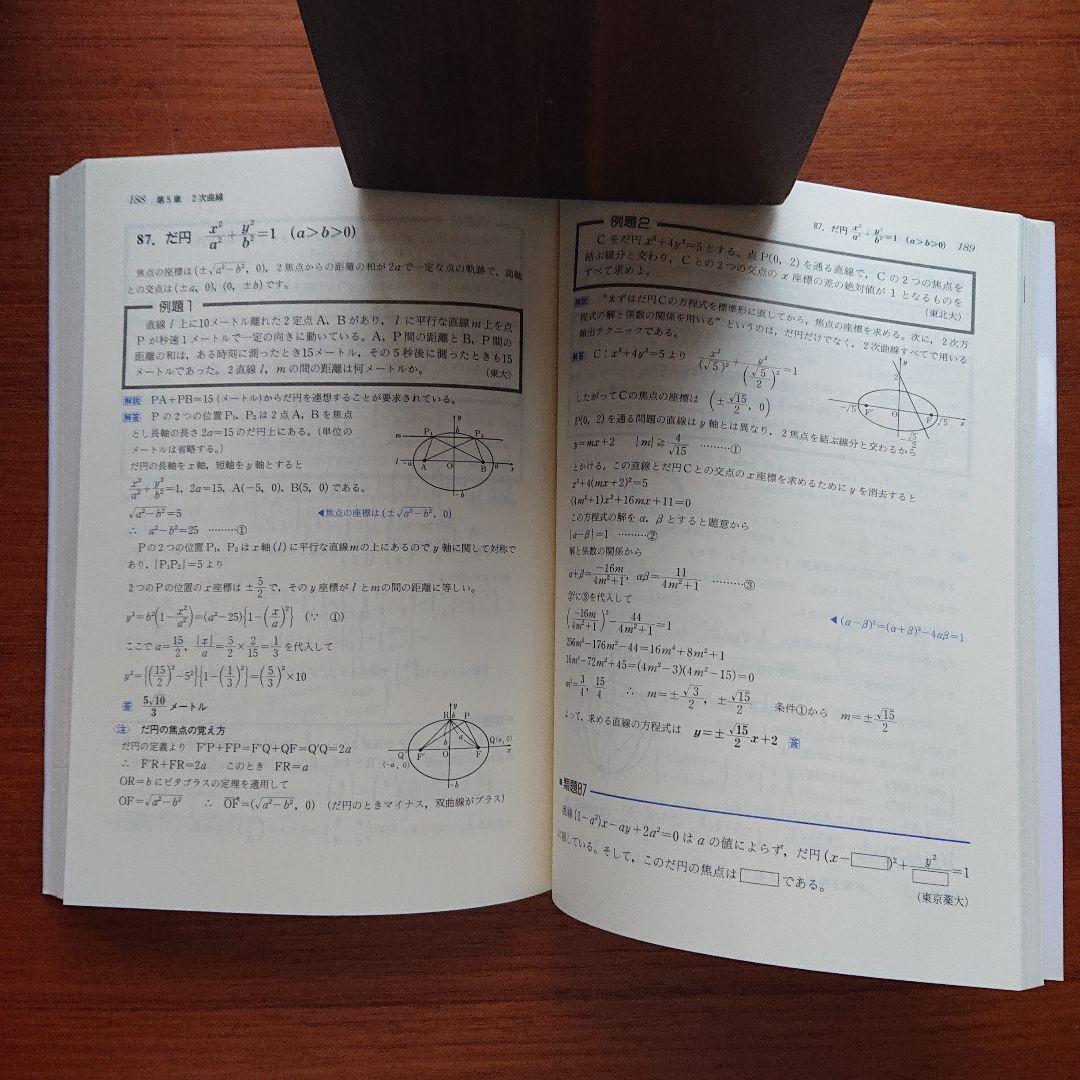 188 第5章 2次曲線
87. だ円 x²/a²+y²/b²=1 (a>b>0)
焦点の座標は(±√a²−b², 0), 2焦点からの距離の和が2aで一定な点の軌跡で, 両軸
との交点は(±a, 0), (0, ±b)です。
例題1
直線l上に10メートル離れた2定点A, Bがあり, lに平行な直線m上を点
Pが秒速1メートルで一定の向きに動いている。A, P間の距離とB, P間の
距離の和は, ある時刻に測ったとき15メートル, その5秒後に測ったときも15
メートルであった。2直線l, mの間の距離は何メートルか。 (東大)
解説 PA+PB=15(メートル)からだ円を連想することが要求されている。
解答 Pの2つの位置P₁, P₂は2点A, Bを焦点
とし長軸の長さ2a=15のだ円上にある。(単位の
メートルは省略する。)
だ円の長軸をx軸, 短軸をy軸とすると
x²/a²+y²/b²=1, 2a=15, A(−5, 0), B(5, 0)である。
√a²−b²=5 ◀焦点の座標は(±√a²−b², 0)
∴ a²−b²=25 ………①
Pの2つの位置P₁, P₂はx軸(l)に平行な直線mの上にあるのでy軸に関して対称で
あり, |P₁P₂|=5より
2つのPの位置のx座標は±5/2で, そのy座標がlとmの間の距離に等しい。
y²=b²(1−x²/a²)=(a²−25){1−(x/a)²} (∵ ①)
ここでa=15/2, |x|/a=5/2×2/15=1/3を代入して
y²={(15/2)²−5²}{1−(1/3)²}=(5/3)²×10
答 5√10/3 メートル
y
m P₁ b P₂
l −a A O B a x
−b
〈注〉 だ円の焦点の覚え方
だ円の定義より F′P+FP=F′Q+QF=Q′Q=2a
∴ F′R+FR=2a このとき FR=a
OR=bにピタゴラスの定理を適用して
OF=√a²−b² ∴ OF=(√a²−b², 0) (だ円のときマイナス, 双曲線がプラス)
y
R b P
Q(a, 0)
b a
Q′ F′ O F x
(−a, 0)
−b
87. だ円 x²/a²+y²/b²=1 (a>b>0) 189
例題2
Cをだ円x²+4y²=5とする。点P(0, 2)を通る直線で, Cの2つの焦点を
結ぶ線分と交わり, Cとの2つの交点のx座標の差の絶対値が1となるものを
すべて求めよ。 (東北大)
解説 “まずはだ円Cの方程式を標準形に直してから, 焦点の座標を求める。次に, 2次方
程式の解と係数の関係を用いる”というのは, だ円だけでなく, 2次曲線すべてで用いる
頻出テクニックである。
解答 C:x²+4y²=5より x²/(√5)²+y²/(√5/2)²=1
したがってCの焦点の座標は (±√15/2, 0)
P(0, 2)を通る問題の直線はy軸とは異なり, 2焦点を結ぶ線分と交わるから
y=mx+2 |m|≧4/√15 ………①
y
2
−√5 F′ O F √5 x
−√5/2
とかける。この直線とだ円Cとの交点のx座標を求めるためにyを消去すると
x²+4(mx+2)²=5
(4m²+1)x²+16mx+11=0
この方程式の解をα, βとすると題意から
|α−β|=1 ………②
解と係数の関係から
α+β=−16m/4m²+1, αβ=11/4m²+1 ………③
②²に③を代入して
(−16m/4m²+1)²−44/4m²+1=1 ◀(α−β)²=(α+β)²−4αβ=1
256m²−176m²−44=16m⁴+8m²+1
16m⁴−72m²+45=(4m²−3)(4m²−15)=0
m²=3/4, 15/4 ∴ m=±√3/2, ±√15/2 条件①から m=±√15/2
よって, 求める直線の方程式は y=±√15/2x+2 答
類題87
直線(1−a²)x−ay+2a²=0はaの値によらず, だ円(x−□)²+y²/□=1
に接している。そして, このだ円の焦点は□である。
(東京薬大)